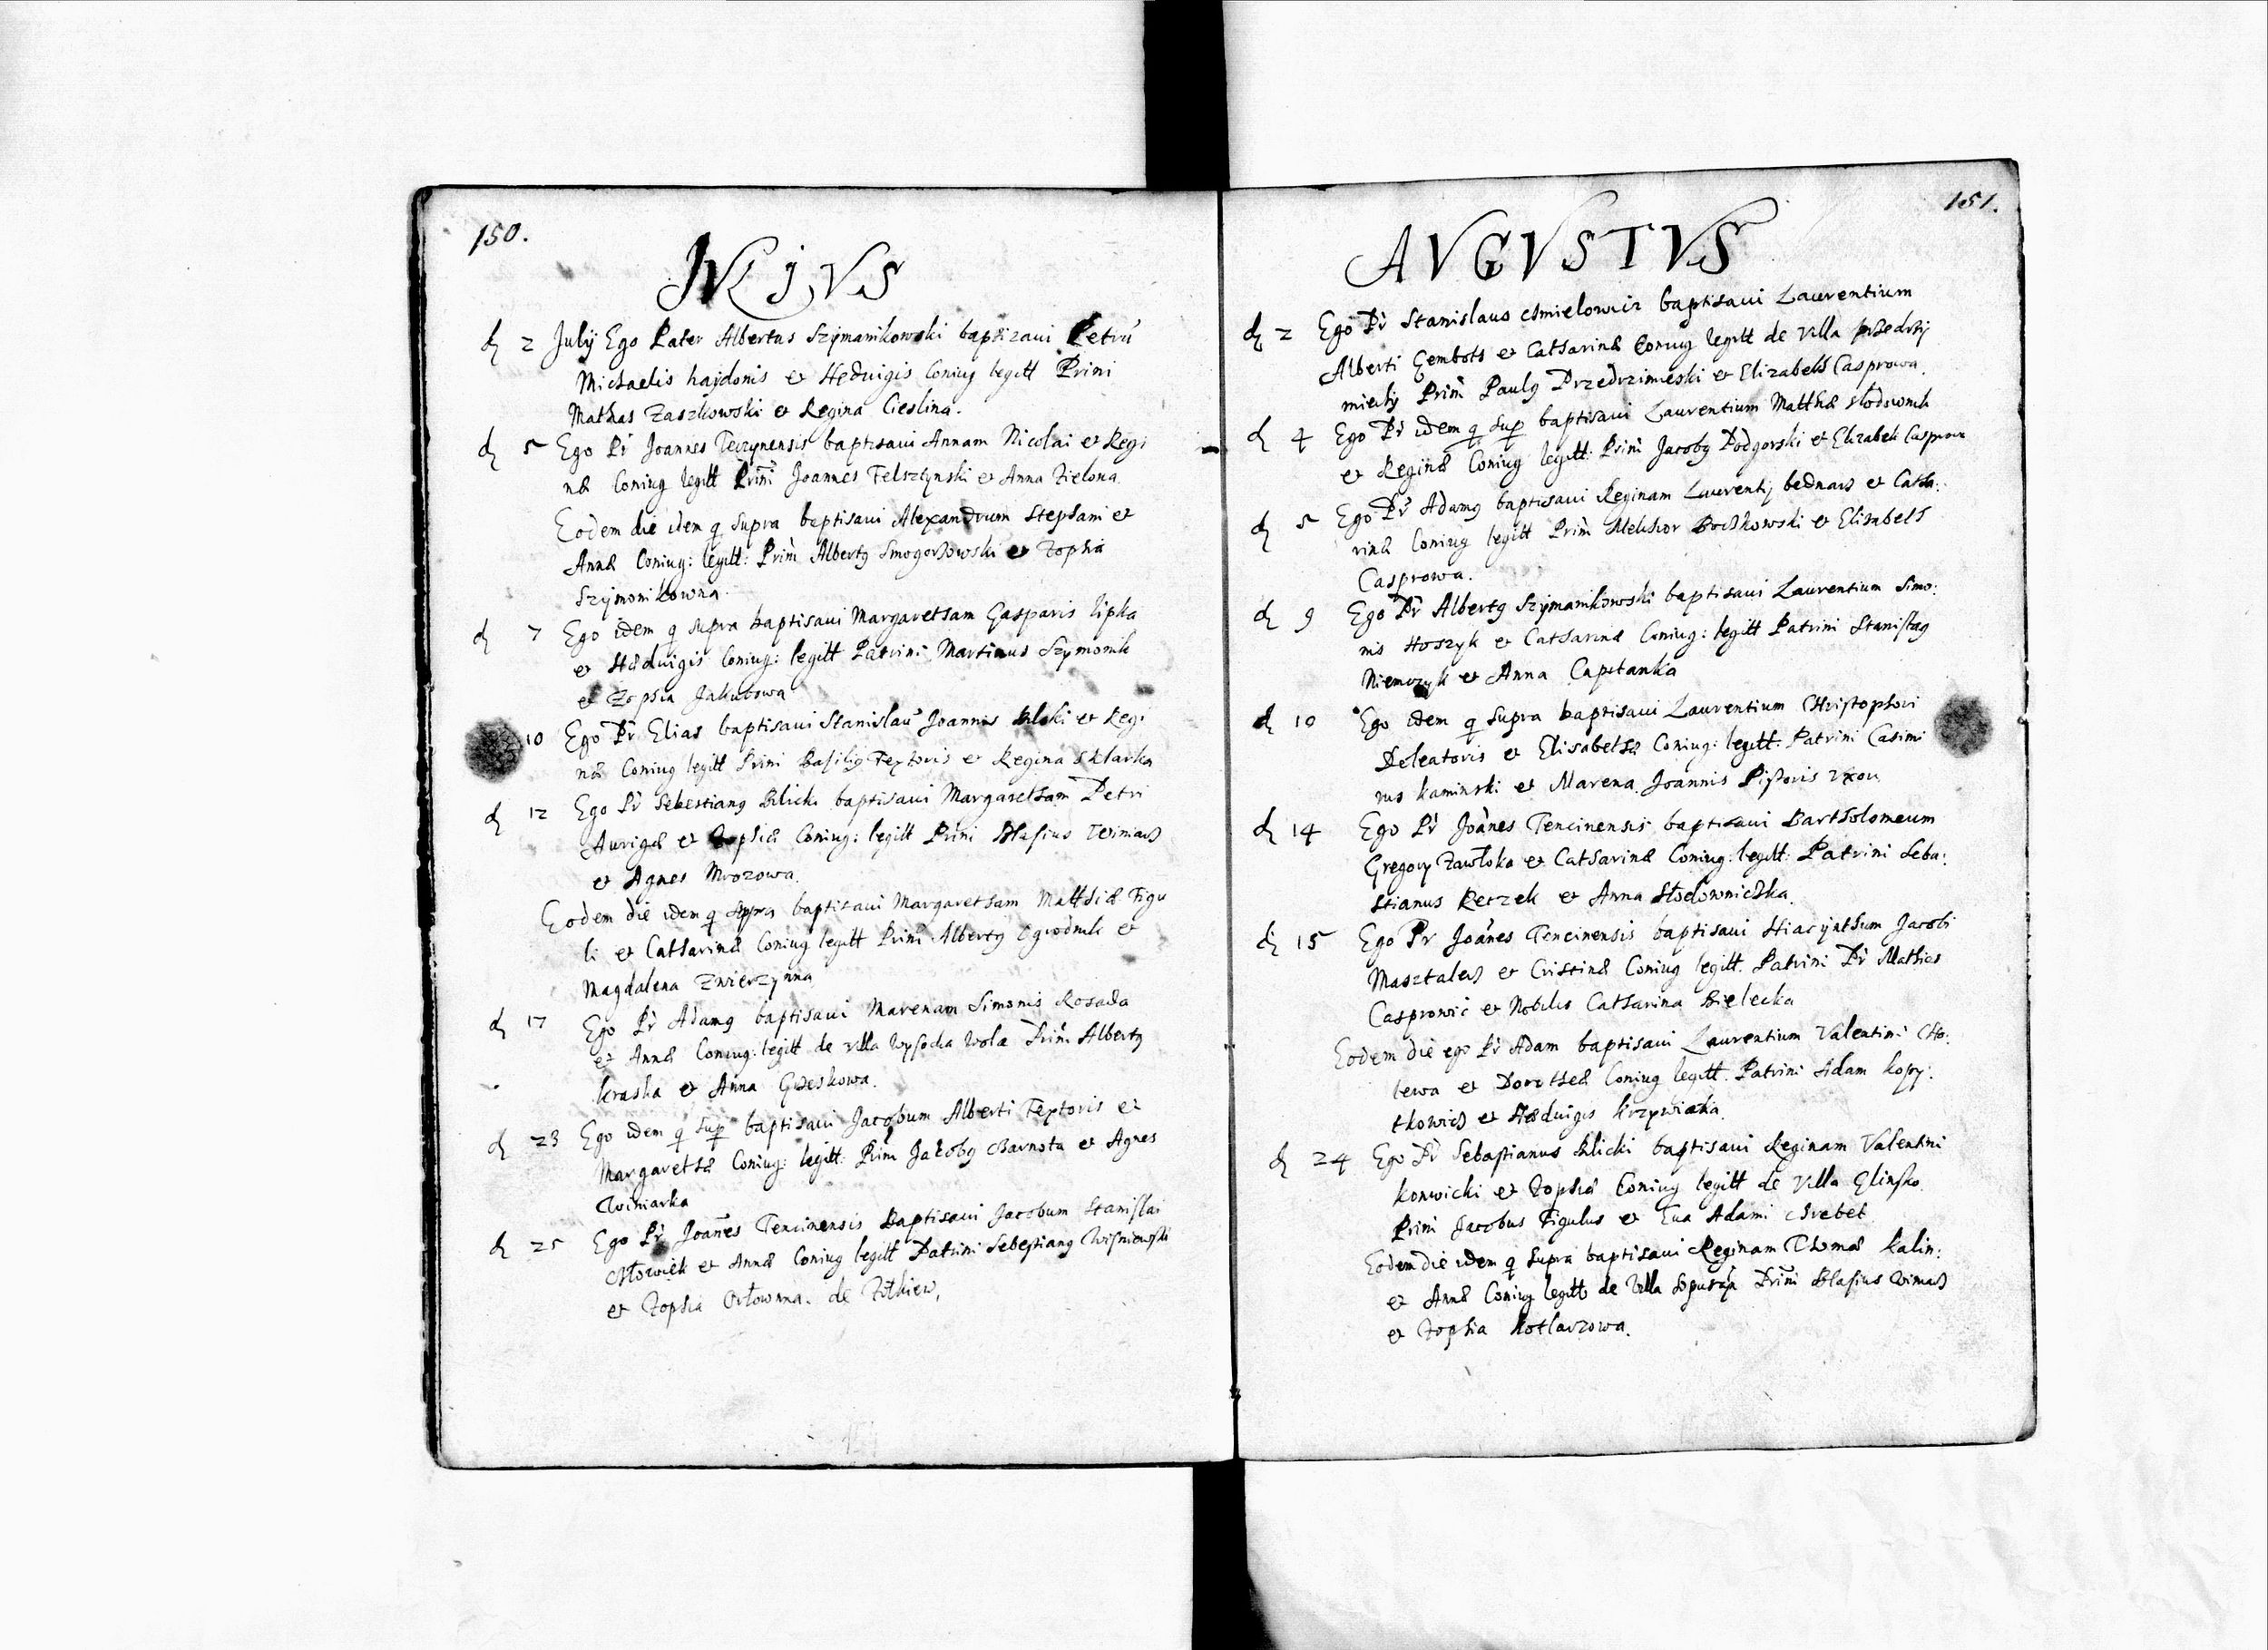 150.
IVLIVS
d 2 July Ego Pater Albertus Szymanikowski baptizaui Petrū
Michaelis hajdonis et Hedvigis Coniug legitt Prini
Mathas Zaszkowski et Regina Cieslina.
d 5 Ego Pr Joannes Teczynensis baptisaui Annam Nicolai et Regi
næ Coniug legitt Prini Joannes Felsztynski et Anna Zielona
Eodem die idem q supra baptisaui Alexandrum Stephani et
Annæ Coniug: legitt: Prini Albertg Smogorzowski et Zophia
Szymonikowna
d 7 Ego idem q supra baptisaui Margaretham Gasparis lipka
et Hædvigis Coniug: legitt Patrini Martinus Szymonik
et Zophia Jakubowa
10 Ego Pr Elias baptisaui Stanislaū Joannis et Regi
næ Coniug legitt Prini Basilig Textoris et Regina Sklarka
d 12 Ego Pr Sebestiang Bilicki baptisaui Margaretham Petri
Aurigæ et Zophiæ Coniug: legitt Prini Blasius Winiarz
et Agnes Mrozowa.
Eodem die idem q supra baptisaui Margaretham Matthiæ Figu
li et Catharinæ Coniug legitt Prini Albertg Ogrodnik et
Magdalena Zwierzynna
d 17 Ego Pr Adamg baptisaui Marenam Simonis Rosada
et Annæ Coniug: legitt de villa Wysocka Wola Prini Albertg
kraska et Anna Grzeskowa.
d 23 Ego idem q sup baptisaui Jacobum Alberti Textoris et
Margarethæ Coniug: legitt: Prini Jacobg Charnota et Agnes
Winiarka
d 25 Ego Pr Joañes Tencinensis Baptisaui Jacobum Stanislai
Człowiek et Annæ Coniug legitt Patrini Sebestiang Wisniewski
et Zophia Orłowna. de Zołkiew,
151.
AVGVSTVS
d 2 Ego Pr Stanislaus Chmielowicz baptisaui Laurentium
Alberti Gembots et Catharinæ Coniug legitt de villa przedrzy
miechy Prini Paulg Przedrzimieski et Elizabeth Casprowa.
d 4 Ego Pr idem q sup baptisaui Laurentium Matthæ słodownik
et Reginæ Coniug legitt: Prini Jacobg Podgorski et Elizabeth Casprowa
d 5 Ego Pr Adamg baptisaui Reginam Laurentij bednarz et Catha:
rinæ Coniug legitt Prini Melchior Boczkowski et Elisabeth
Casprowa.
d 9 Ego Pr Albertg Szymanikowski baptisaui Laurentium Simo:
nis Hoszyk et Catharinæ Coniug: legitt Patrini Stanislag
Niemczyk et Anna Capitanka
d 10 Ego idem q supra baptisaui Laurentium Christophori
Deleatoris et Elisabethæ Coniug: legitt: Patrini Casimi
rus kaminski et Marena Joannis Pistoris vxor
d 14 Ego Pr Joànes Tencinensis baptisaui Bartholomeum
Gregory Zawłoka et Catharinæ Coniug: legitt: Patrini Seba:
stianus Reczek et Anna Słodowniczka.
d 15 Ego Pr Joànes Tencinensis baptisaui Hiacynthum Jacobi
Masztalerz et Cristinæ Coniug legitt. Patrini Pr Mathias
Casprowic et Nobilis Catharina Bielecka
Eodem die ego Pr Adam baptisaui Laurentium Valentini Cho:
lewa et Dorotheæ Coniug legitt. Patrini Adam kopy:
tkowicz et Hædvigis krzywiacka.
d 24 Ego Pr Sebastianus Bilicki baptisaui Reginam Valentini
konwicki et Zophiæ Coniug legitt de Villa Glinsko.
Prini Jacobus Figulus et Eua Adami Chrebet
Eodem die idem q supra baptisaui Reginam Thomæ kalin:
et Annæ Coniug legitt de Villa Prini Blasius Winiarz
et Zophia kotlarzowa.